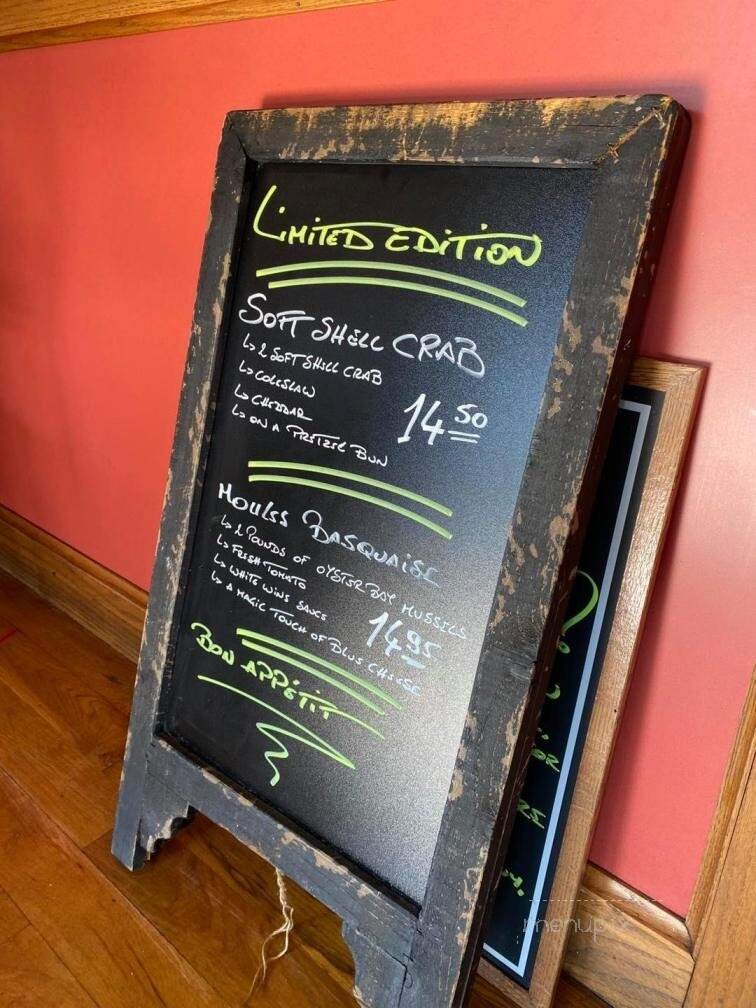 LIMITED EDITION
SOFT SHELL CRAB
↳ 2 SOFT SHELL CRAB
↳ COLESLAW
↳ CHEDDAR
↳ ON A PRETZER BUN
14 50
MOULES BASQUAISE
↳ 2 POUNDS OF OYSTER BAY MUSSELS
↳ FRESH TOMATO
↳ WHITE WINE SAUCE
↳ A MAGIC TOUCH OF BLUE CHEESE
14 95
BON APPÉTIT
menupix